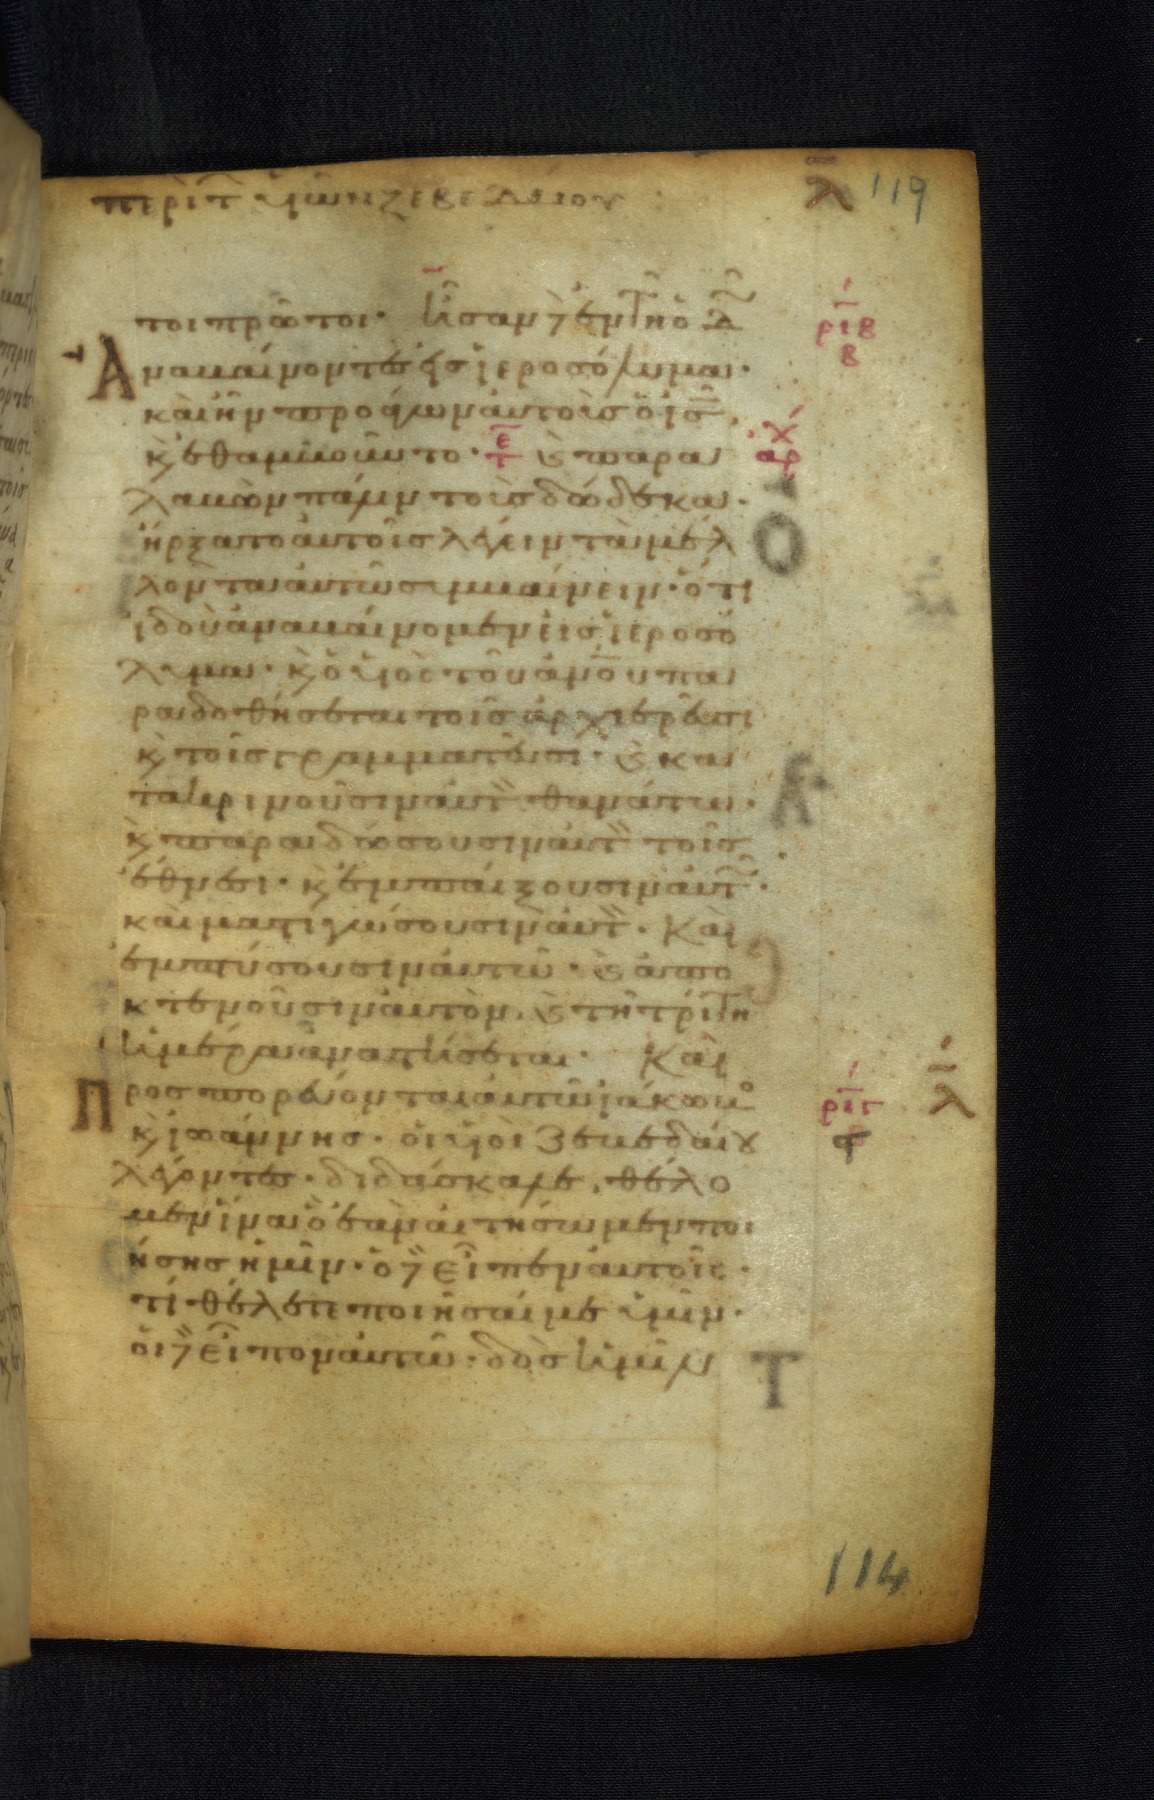 περὶ τ υἱῶν ζεβεδαίου : λ 119
τοι πρῶτοι· ἦσαν δ ἐν τῆ ὁδ ριβ
β
ἀναβαίνοντες εἰς ἱεροσόλυμα·
καὶ ἦν προάγων αὐτοὺς ὁ ις, ἀρχ
κ ἐθαμβοῦντο· τε κ παρα
λαβὼν πάλιν τοὺς δώδεκα·
ἤρξατο αὐτοῖς λέγειν τὰ μέλ
λοντα αὐτῶ συμβαίνειν· ὅτι
ἰδοὺ ἀναβαίνομεν εἰς ἱεροσό
λυμα· κ ὁ υἱὸς τοῦ ἀνου πα
ραδοθήσεται τοῖς ἀρχιερεῦσι
κ τοῖς γραμματεῦσι· κ κα
τακρινοῦσιν αὐτ θανάτω·
κ παραδώσουσιν αὐτ τοῖς
ἔθνεσι· κ ἐμπαίξουσιν αὐτ·
καὶ μαστιγώσουσιν αὐτ· καὶ
ἐμπτύσουσιν αὐτῶ· κ ἀπο
κτενοῦσιν αὐτὸν, κ τῆ τρίτη
ἡμέρα ἀναστήσεται· Καὶ
προσπορεύονται αὐτῶ ἰάκωβο ριγ λ
κ ἰωάννης· οἱ υἱοὶ ζεβεδαίου
λέγοντες· διδάσκαλε, θέλο
μεν ἵνα ὃ ἐὰν αἰτήσωμεν ποι
ήσης ἡμῖν· ὁ δ εἶπεν αὐτοῖς·
τί θέλετε ποιῆσαί με ὑμῖν·
οἱ δ εἶπον αὐτῶ· δὸς ἡμῖν
114